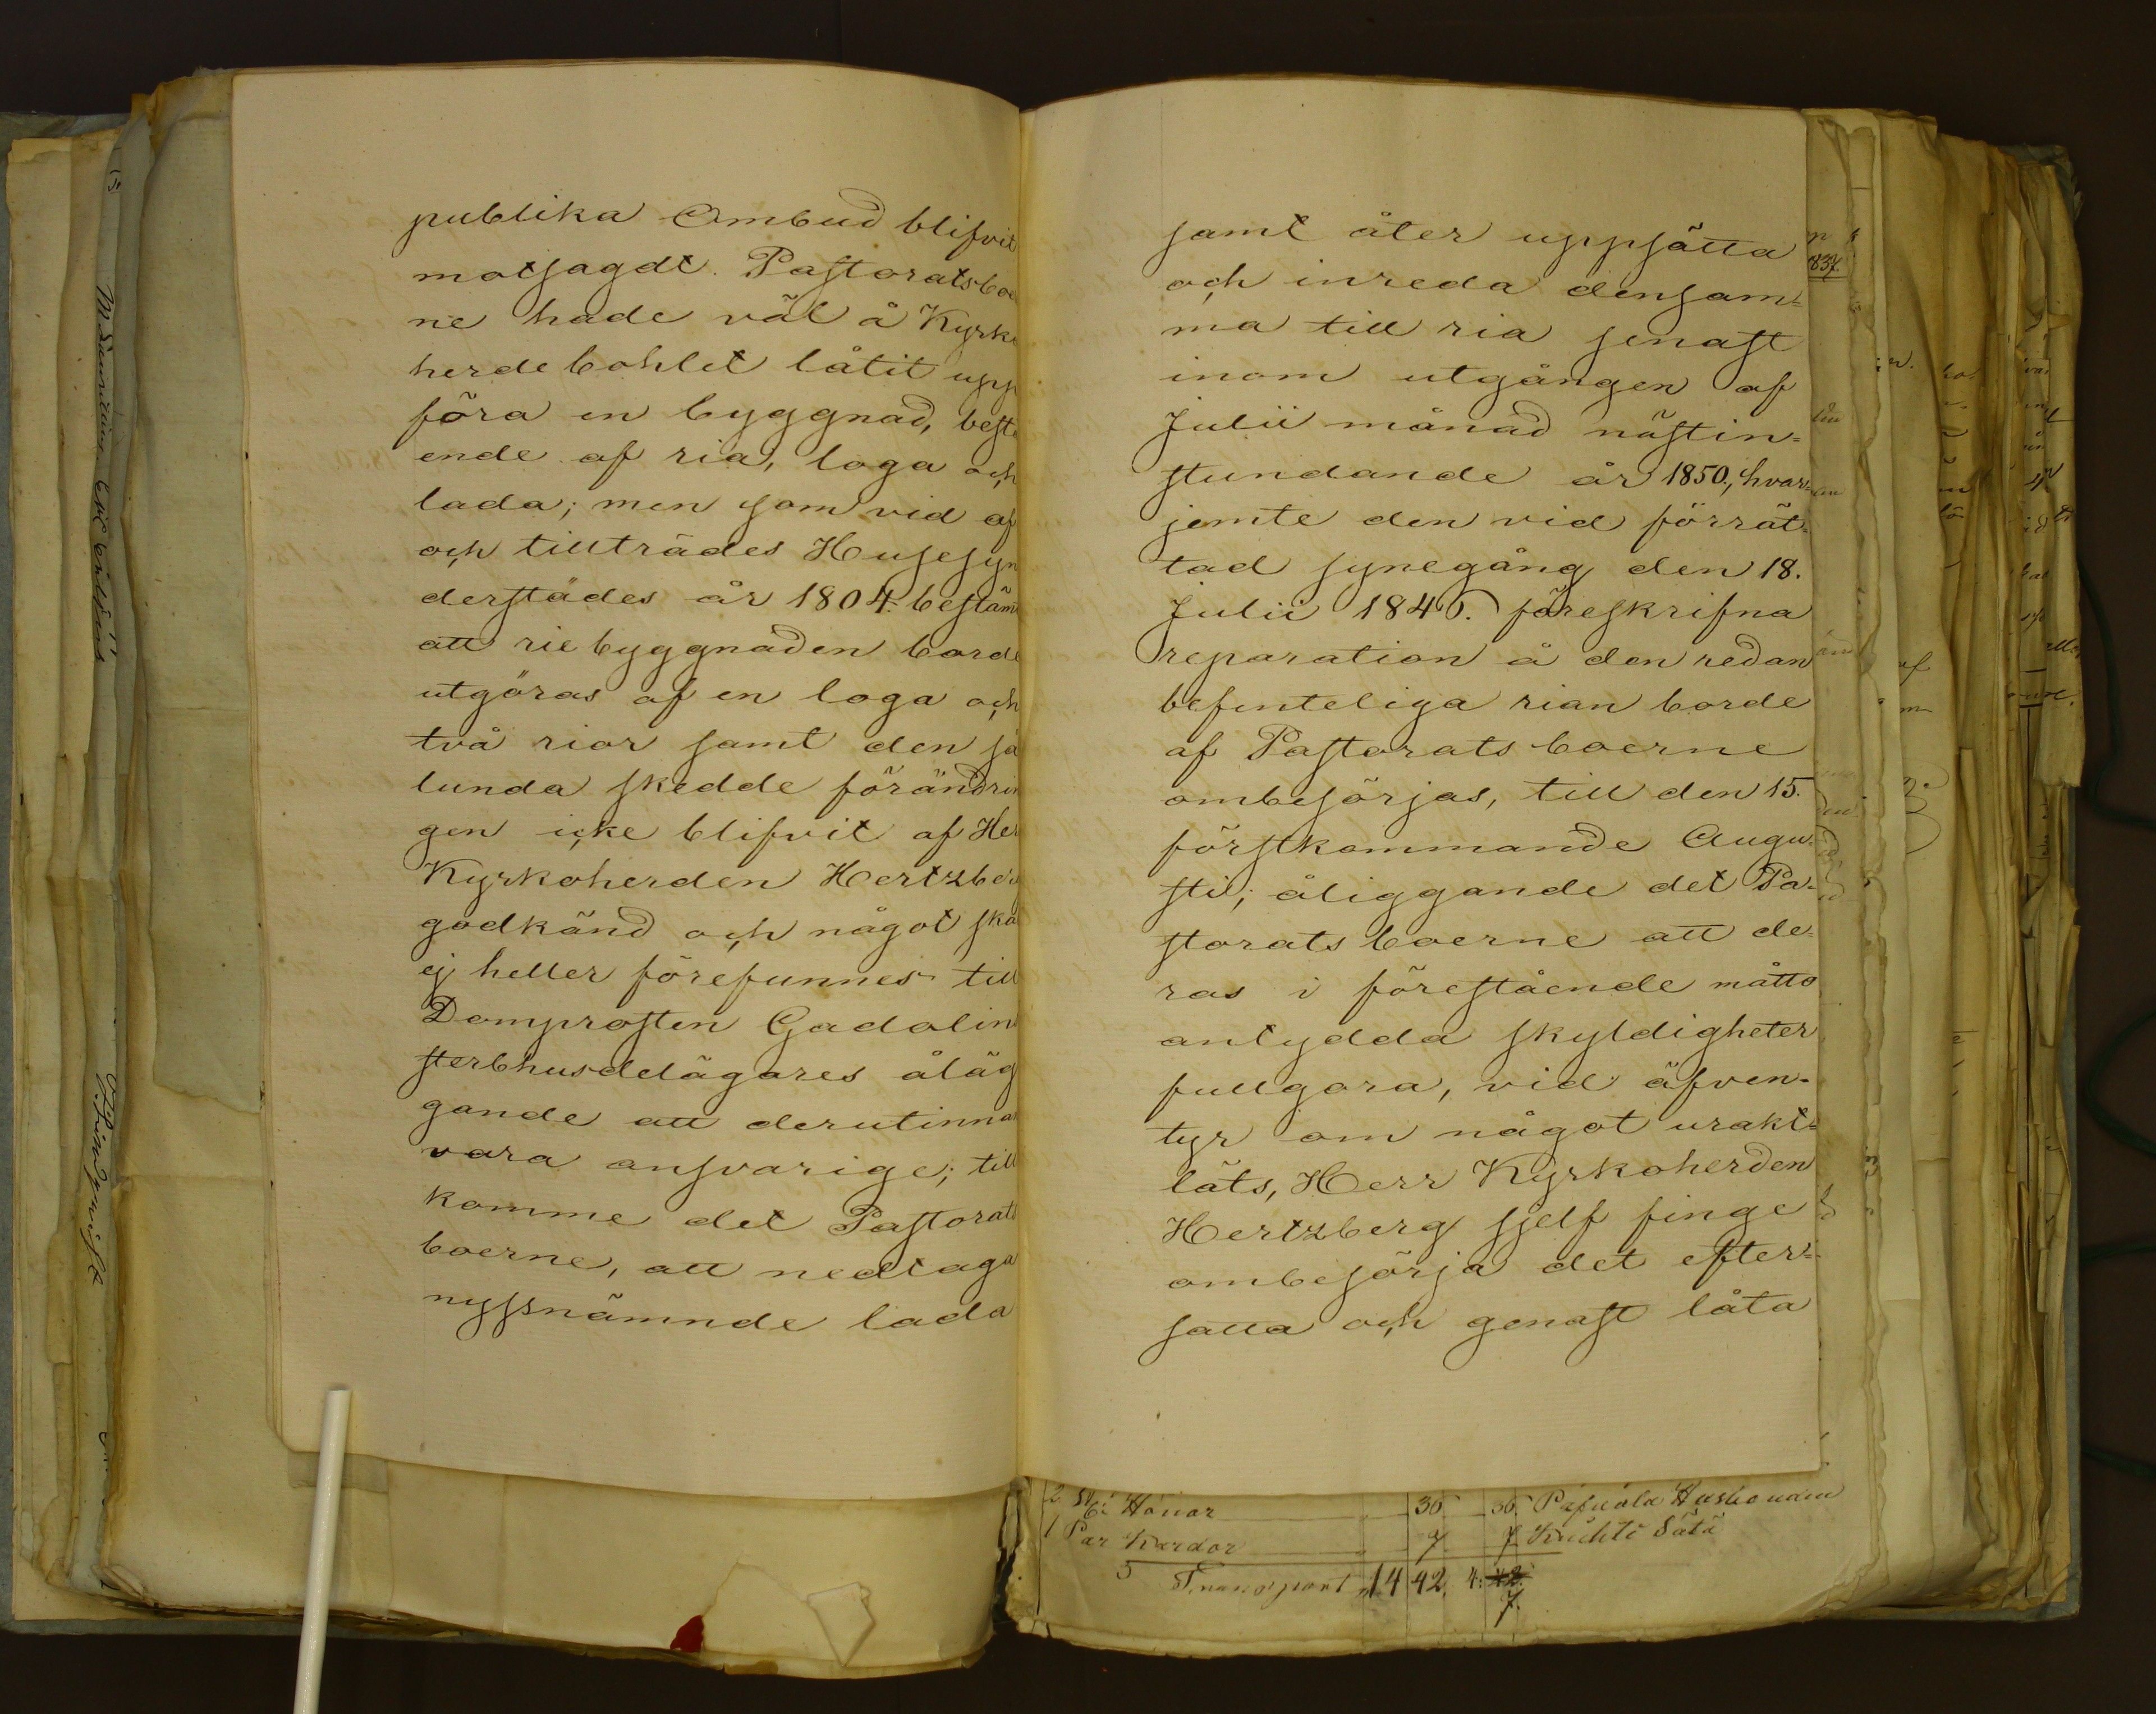 publika Ombud blifvit
motsagdt. Pastoratsboe
ne hade väl å Kyrko
herde bohlet låtit upp
föra en byggnad, bestå
ende af ria, loga och
lada; men som vid af
och tillträdes Husesyn
derstädes år 1804. bestämt
att rie byggnaden borde
utgöras af en loga och
två rior samt den så
lunda skedde förändrin
gen icke blifvit af Her
Kyrkoherden Hertzberg
godkänd och något skä
ej heller förefunnes till
Domprosten Gadolins
sterbhusdelägares åläg
gande att derutinnan
vara ansvarige; till
komme det Pastorats
boerne, att nedtaga
nyssnämnde lada
samt åter uppsätta
och inreda densam=
ma till ria senast
inom utgången af
Julii månad nästin=
stundande år 1850., hvar=
jemte den vid förrät=
tad synegång den 18.
Julii 1846. föreskrifna
reparation å den redan
befinteliga rian borde
af Pastorats boerne
ombesörjas, till den 15.
förstkommande Augu=
sti; åliggande det Pa=
storats boerne att de=
ras i förestående måtto
antydda skyldigheter
fullgöra, vid äfven=
tyr om något urakt=
låts, Herr Kyrkoherden
Hertzberg sjelf finge
ombesörja det efter=
satta och genast låta
2 St: Hönor 36 36.
1 Par Kardor 7 7
Transport 14 42. 4: 42.
7.